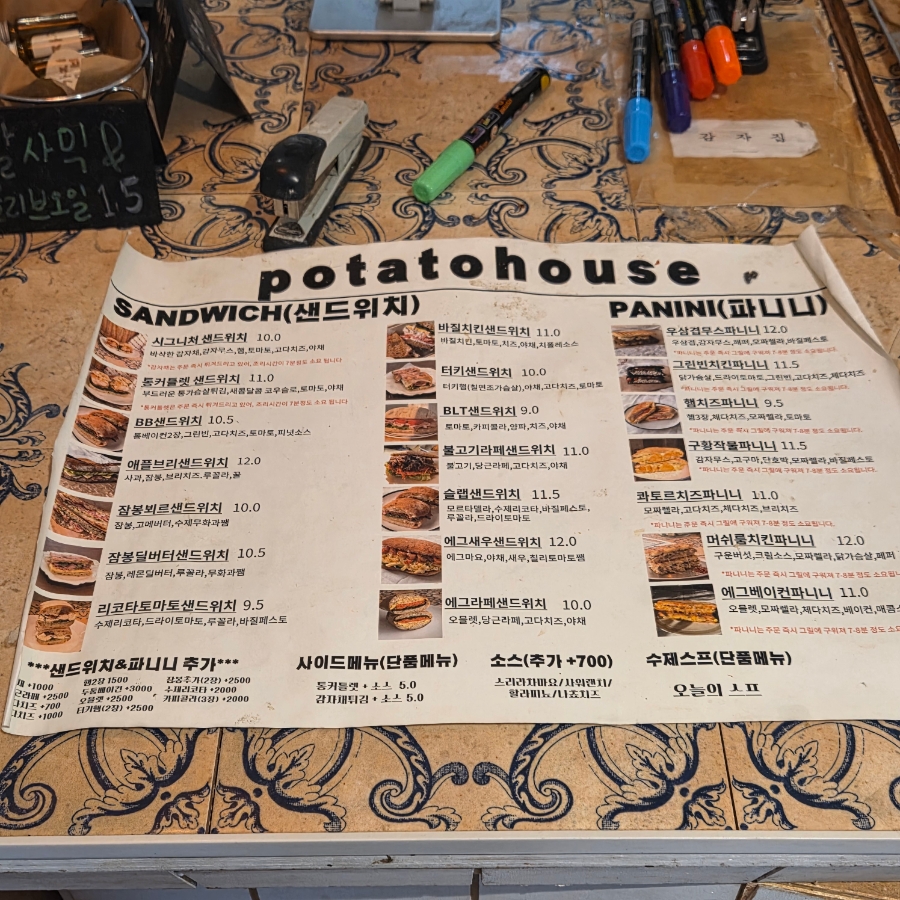 사믹 &
리브오일 1.5
감자집
potatohouse
SANDWICH(샌드위치)
시그니처샌드위치 10.0
바삭한 감자채,감자무스,햄,토마토,고다치즈,야채
*감자채는 주문 즉시 튀겨드리고 있어, 조리시간이 7분정도 소요 됩니다
통커틀렛 샌드위치 11.0
부드러운 통가슴살튀김,새콤달콤 코우슬로,토마토,야채
*통커틀렛은 주문 즉시 튀겨드리고 있어, 조리시간이 7분정도 소요 됩니다
BB샌드위치 10.5
통베이컨2장,그린빈,고다치즈,토마토,피넛소스
애플브리샌드위치 12.0
사과,잠봉,브리치즈,루꼴라,꿀
잠봉뵈르샌드위치 10.0
잠봉,고메버터,수제무화과쨈
잠봉딜버터샌드위치 10.5
잠봉,레몬딜버터,루꼴라,무화과쨈
리코타토마토샌드위치 9.5
수제리코타,드라이토마토,루꼴라,바질페스토
바질치킨샌드위치 11.0
바질치킨,토마토,치즈,야채,치폴레소스
터키샌드위치 10.0
터키햄(칠면조가슴살),야채,고다치즈,토마토
BLT샌드위치 9.0
토마토,카피콜라,양파,치즈,야채
불고기라페샌드위치 11.0
불고기,당근라페,고다치즈,야채
슬랩샌드위치 11.5
모르타델라,수제리코타,바질페스토,
루꼴라,드라이토마토
에그새우샌드위치 12.0
에그마요,야채,새우,칠리토마토쨈
에그라페샌드위치 10.0
오믈렛,당근라페,고다치즈,야채
PANINI(파니니)
우삼겹무스파니니 12.0
우삼겹,감자무스,페퍼,모짜렐라,바질페스토
*파니니는 주문 즉시 그릴에 구워져 7-8분 정도 소요됩니다.
그린빈치킨파니니 11.5
닭가슴살,드라이토마토,그린빈,고다치즈,체다치즈
*파니니는 주문 즉시 그릴에 구워져 7-8분 정도 소요됩니다.
햄치즈파니니 9.5
햄3장,체다치즈,모짜렐라,토마토
*파니니는 주문 즉시 그릴에 구워져 7-8분 정도 소요됩니다.
구황작물파니니 11.5
감자무스,고구마,단호박,모짜렐라,바질페스토
*파니니는 주문 즉시 그릴에 구워져 7-8분 정도 소요됩니다.
콰토르치즈파니니 11.0
모짜렐라,고다치즈,체다치즈,브리치즈
*파니니는 주문 즉시 그릴에 구워져 7-8분 정도 소요됩니다.
머쉬룸치킨파니니 12.0
구운버섯,크림소스,모짜렐라,닭가슴살,페퍼
*파니니는 주문 즉시 그릴에 구워져 7-8분 정도 소요됩
에그베이컨파니니 11.0
오믈렛,모짜렐라,체다치즈,베이컨,매콤소
*파니니는 주문 즉시 그릴에 구워져 7-8분 정도 소요됩
***샌드위치&파니니 추가***
+1000 햄2장 1500 잠봉추가(2장) +2500
근라페 +2500 두툼베이컨 +3000 수제리코타 +2000
다치즈 +700 오믈렛 +2500 카피콜라(3장) +2000
치즈 +1000 터키햄(2장) +2500
사이드메뉴(단품메뉴)
통커틀렛 + 소스 5.0
감자채튀김 + 소스 5.0
소스(추가 +700)
스리라차마요/사워랜치/
할라피뇨/나쵸치즈
수제스프(단품메뉴)
오늘의 스프